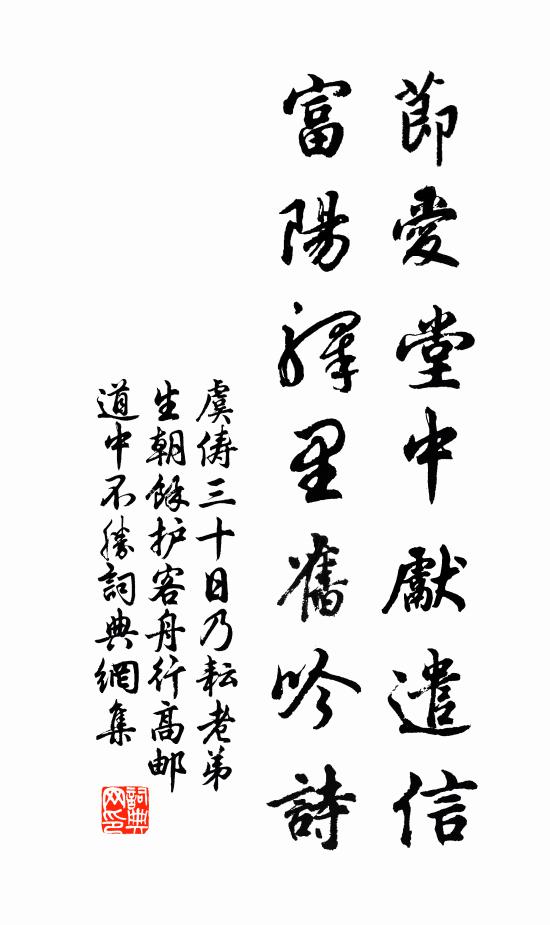 節愛堂中獻遣信
富陽驛里舊吟詩
虞儔三十日乃耘老弟
生朝餘护客舟行高邮
道中不勝詞典網集
詞典
网印